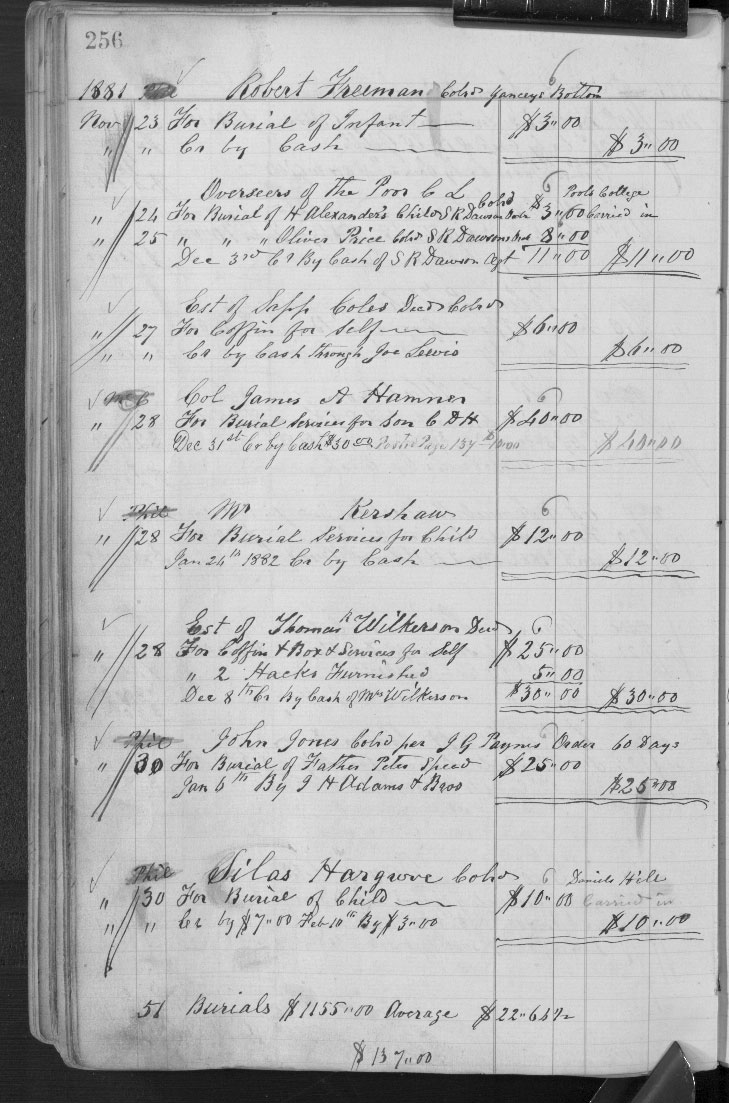 256
1881 Robert Freeman Colrd Yanceys Bottom
Nov 23 For Burial of Infant $3"00
" " Cr by Cash $3"00
Overseers of the Poor C L Pools College
" 24 For Burial of H Alexander's Child Colrd S R Dawson Ordr $3"00 Carried in
" 25 " " " Oliver Price Colrd S R Dawsons Ord 8"00
Dec 3rd Cr By Cash of S R Dawson Agt 11"00 $11"00
Est of Sapp Coles Decd Colrd
" 27 For Coffin for Self $6"00
" " Cr by Cash through Joe Lewis $6"00
Col James A Hamner
" 28 For Burial Services for Son C D H $40"00
Dec 31st Cr by Cash $30"00 Posted Page 157 $10"00 $40"00
Phil Mr Kershaw
" 28 For Burial Services for Child $12"00
Jan 24th 1882 Cr by Cash $12"00
Est of Thomas Wilkerson Decd
" 28 For Coffin & Box & Services for Self $25"00
" 2 Hacks Furnished 5"00
Dec 8th Cr By Cash of Mrs Wilkerson $30"00 $30"00
Phil John Jones Colrd per J G Paynes Order 60 Days
" 30 For Burial of Father Peter Speed $25"00
Jan 6th By J H Adams & Broo $25"00
Phil Silas Hargrove Colrd Daniels Hill
" 30 For Burial of Child $10"00 Carried in
" " Cr by $7"00 Feb 10th By $3"00 $10"00
51 Burials $1155"00 Average $22"64½
$137"00